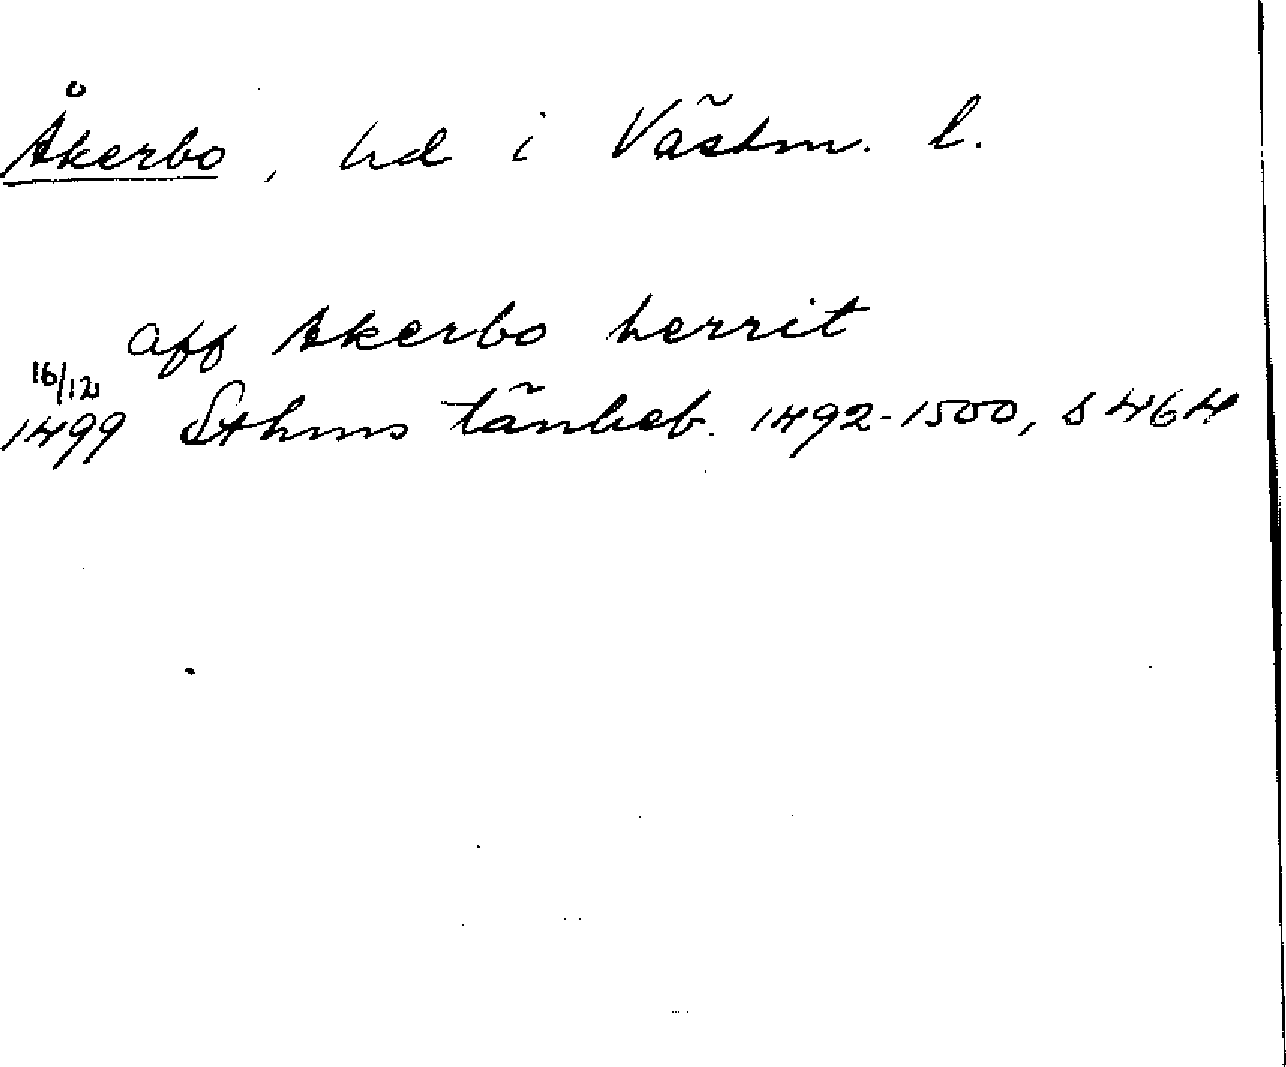 Åkerbo, hd i Västm. l.
aff Akerbo herrit
16/12
1499 Sthms tänkeb. 1492-1500, s 464